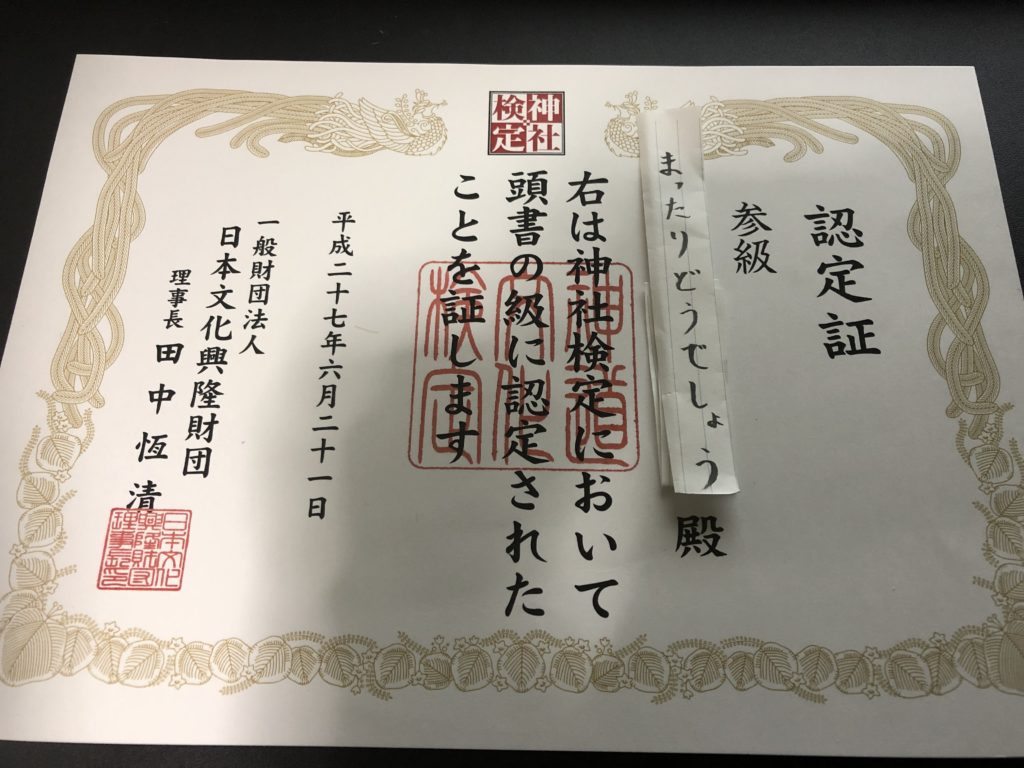 神社検定
認定証
参級
まったりどうでしょう
殿
右は神社検定において
頭書の級に認定された
ことを証します
神道
文化
検定
平成二十七年六月二十一日
一般財団法人
日本文化興隆財団
理事長 田中恆清
日本文化
興隆財団